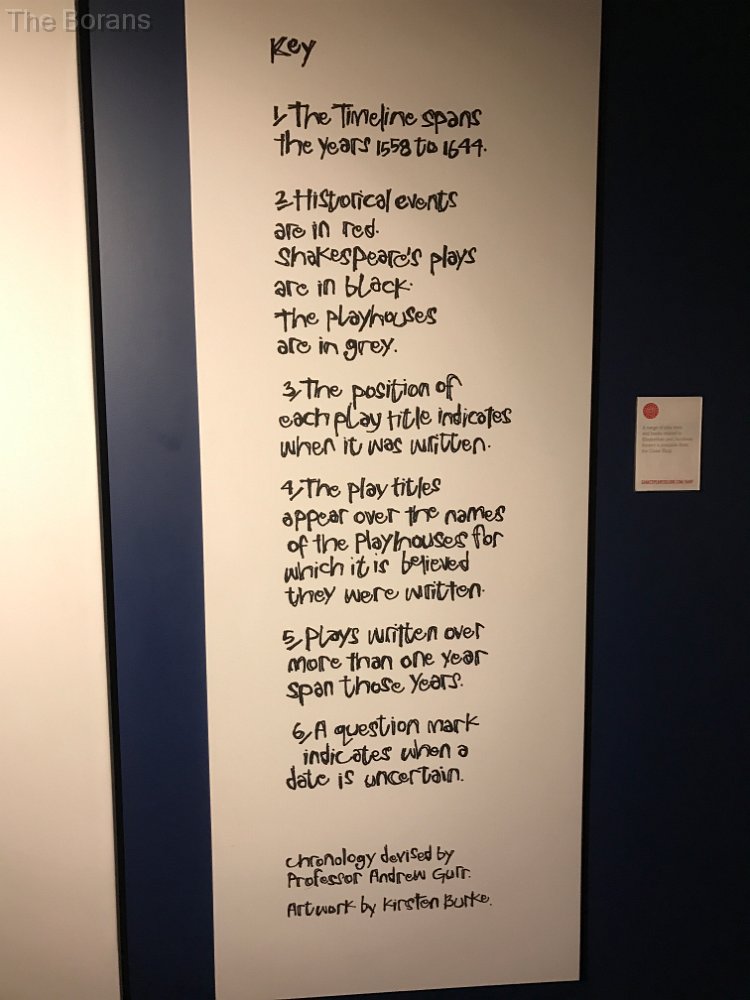 The Borans
Key
1, The Timeline spans
the years 1558 to 1644.
2, Historical events
are in red.
Shakespeare's plays
are in black.
The playhouses
are in grey.
3, The position of
each play title indicates
when it was written.
4, The play titles
appear over the names
of the playhouses for
which it is believed
they were written.
5, Plays written over
more than one year
span those years.
6, A question mark
indicates when a
date is uncertain.
Chronology devised by
Professor Andrew Gurr.
Artwork by Kirsten Burke.